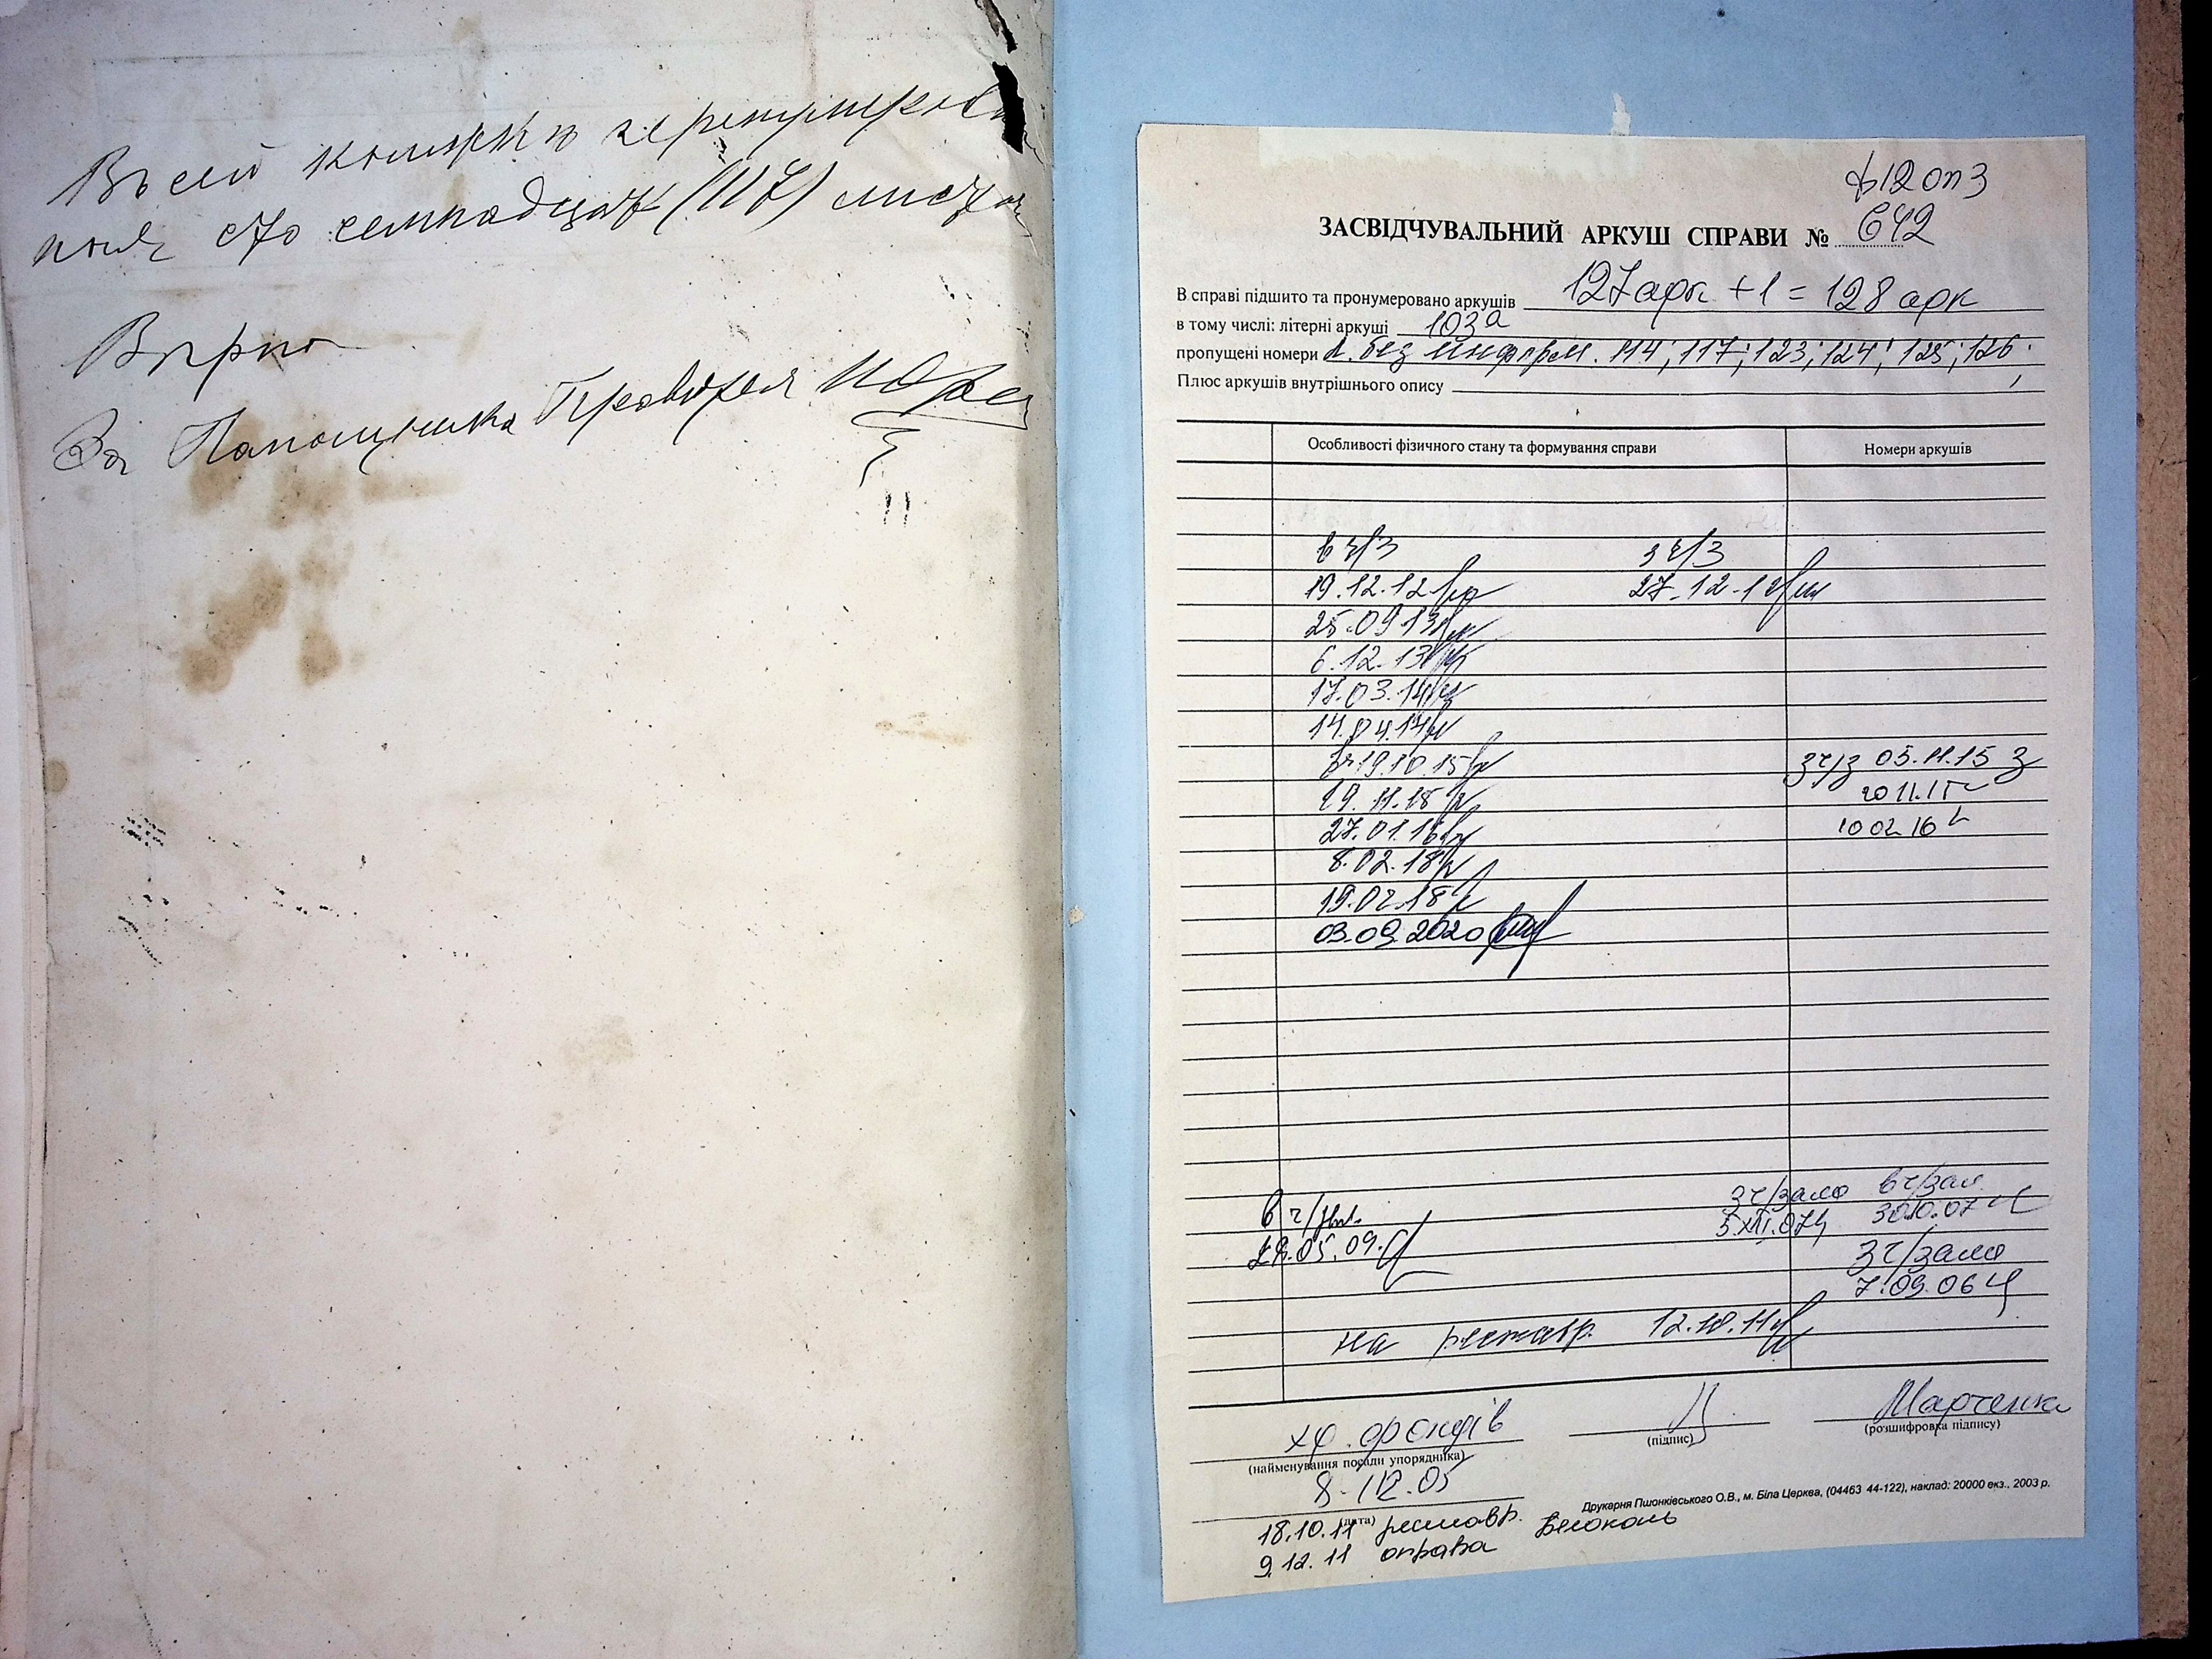 Въ сей книжкѣ
сто семнадцать (117) листов
Вѣрно
За Помощника
ф12 оп3
ЗАСВІДЧУВАЛЬНИЙ АРКУШ СПРАВИ № 642
В справі підшито та пронумеровано аркушів 127 арк + 1 = 128 арк
в тому числі: літерні аркуші 103а
пропущені номери л. без информ. 114; 117; 123; 124; 125; 126
Плюс аркушів внутрішнього опису
Особливості фізичного стану та формування справи Номери аркушів
в ч/з з ч/з
19.12.12 27.12.12
25.09.13
6.12.13
17.03.14
14.04.14
19.10.15 з ч/з 05.11.15
19.11.15 20 11.15
27.01.16 10 02 16
8.02.18
19.02.18
03.09.2020
з ч/зали в ч/зал
в ч/зал. 5.XII.07 30.10.07
05.09. з ч/зали
7.09.06
на реставр. 12.10.11
хр. фондів Марченко
(найменування посади упорядника) (підпис) (розшифровка підпису)
8.12.05
(дата)
Друкарня Пшонківського О.В., м. Біла Церква, (04463 44-122), наклад: 20000 екз., 2003 р.
18.10.11 реставр. Белоконь
9.12.11 оправа